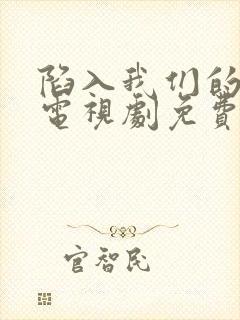 陷入我们的
電視劇免費
官智民